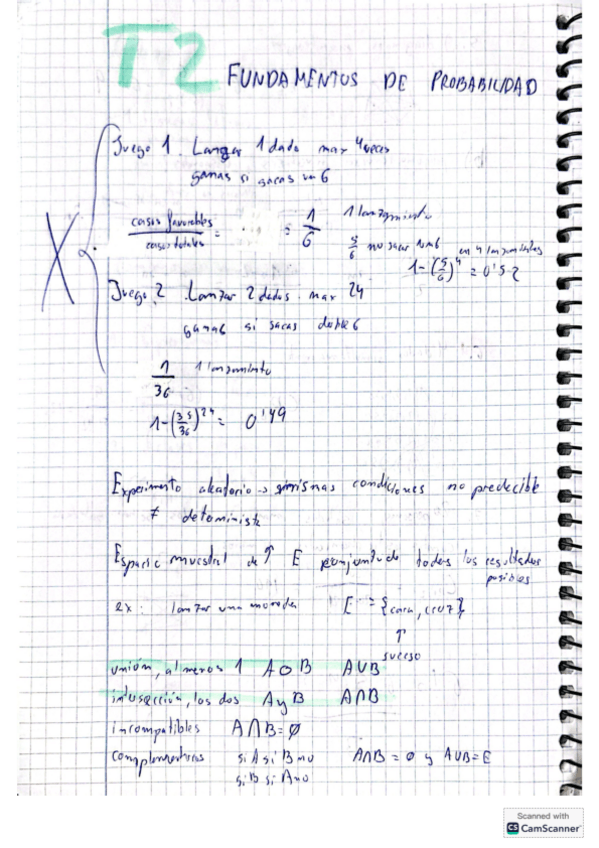 T2 FUNDAMENTOS DE PROBABILIDAD
Juego 1. Lanzar 1 dado max 4 veces
ganas si sacas un 6
casos favorables / casos totales = = 1/6 1 lanzamiento
5/6 no sacar un 6 en 4 lanzamientos
1-(5/6)^4 = 0'52
Juego 2 . Lanzar 2 dados. max 24
ganas si sacas doble 6
1/36 1 lanzamiento
1-(35/36)^24 = 0'49
Experimento aleatorio -> mismas condiciones no predecible
≠ determinista
Espacio muestral de ↑ E conjunto de todos los resultados
posibles
ex: lanzar una moneda E = {cara, cruz}
↑
suceso
unión, al menos 1 A o B A∪B
intersección, los dos A y B A∩B
incompatibles A∩B=Ø
complementarios si A si B no A∩B = Ø y A∪B=E
si B si A no
Scanned with
CS CamScanner